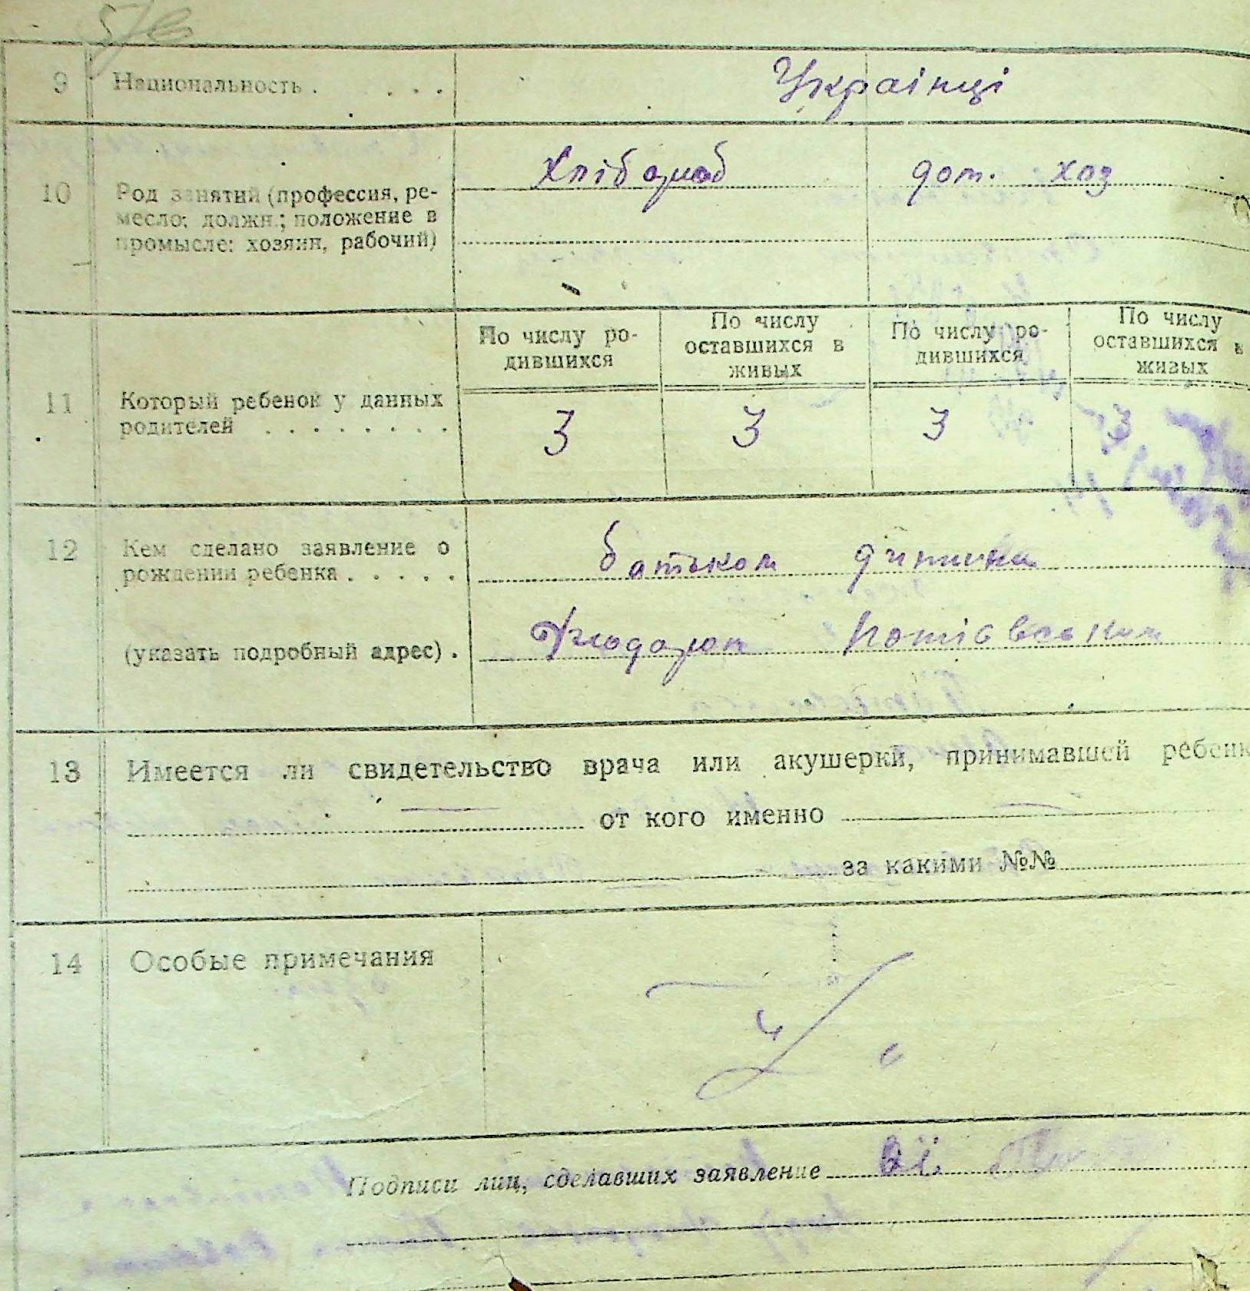 9 Национальность . . . . Українці
10 Род занятий (профессия, ре-
месло; должн.; положение в
промысле: хозяин, рабочий)
Хлібороб дом. хоз
По числу ро-
дившихся
По числу
оставшихся в
живых
По числу ро-
дившихся
По числу
оставшихся в
живых
11 Который ребенок у данных
родителей . . . . . . . .
3 3 3 3
12 Кем сделано заявление о
рождении ребенка . . . . .
батьком дитини
(указать подробный адрес) .
13 Имеется ли свидетельство врача или акушерки, принимавшей ребенк
от кого именно
за какими №№
14 Особые примечания
Подписи лиц, сделавших заявление